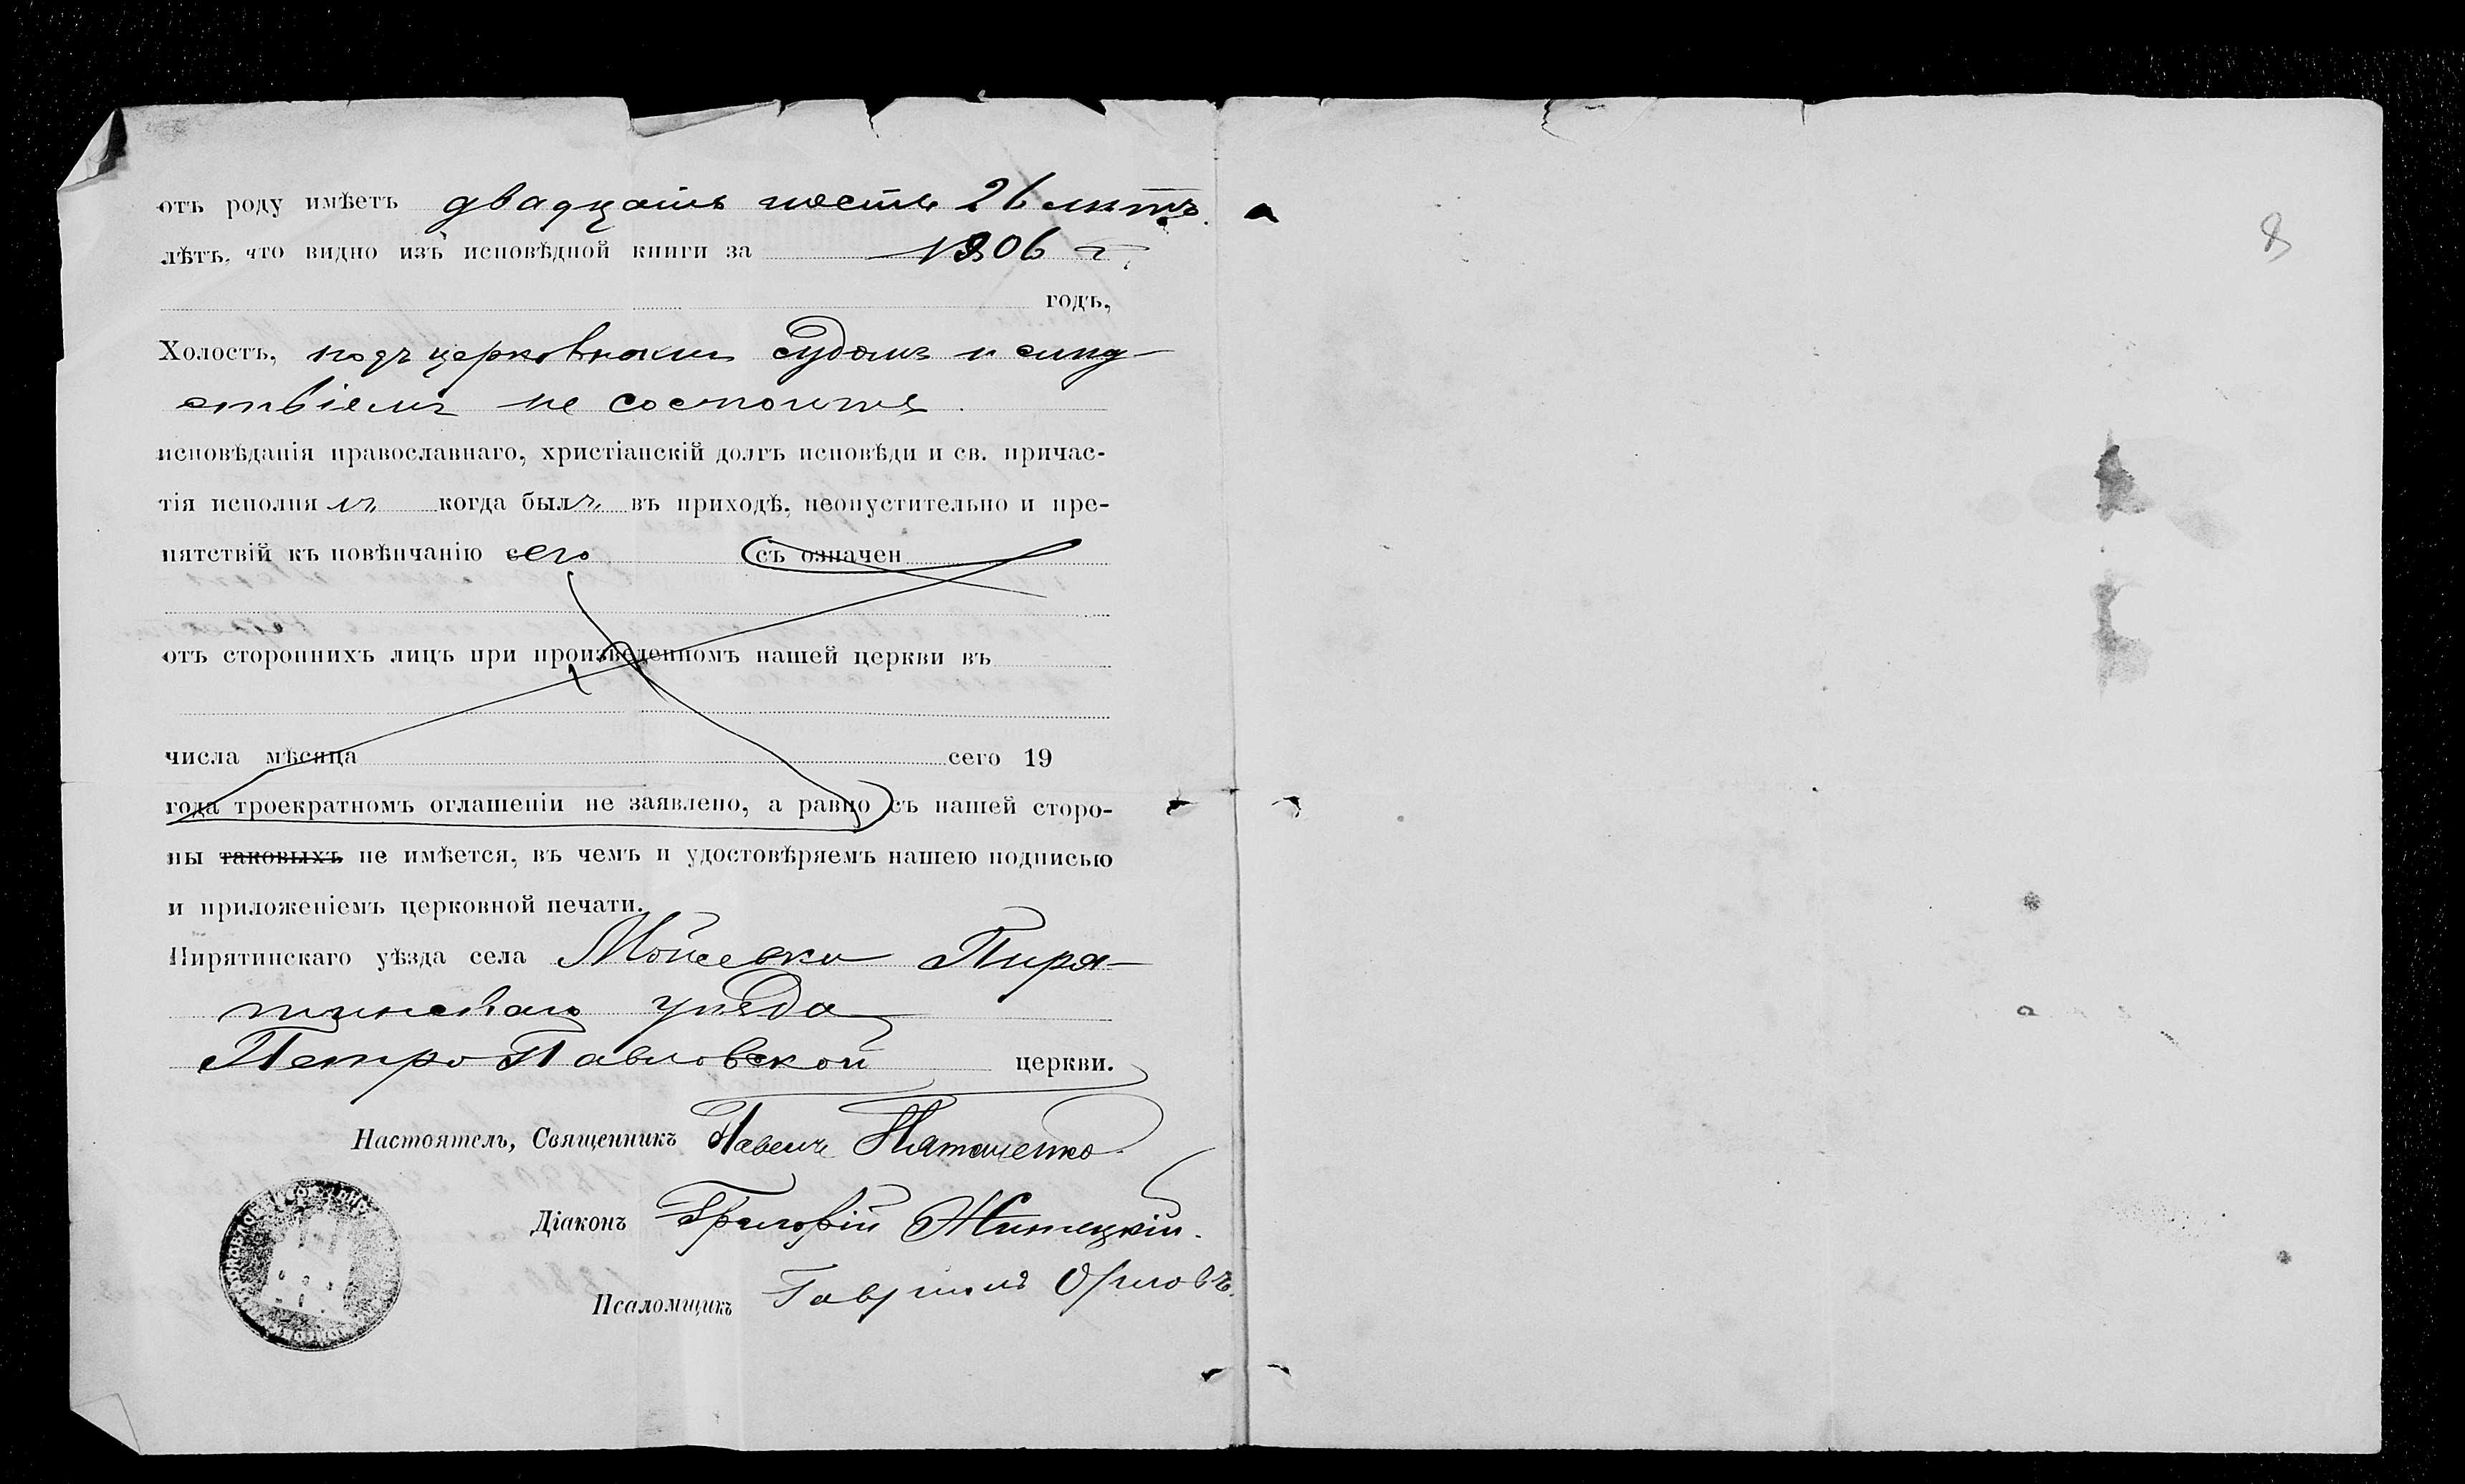 отъ роду имѣетъ двадцать шесть 26 лѣтъ.
лѣтъ, что видно изъ исповѣдной книги за 1906 г.
годъ,
Холостъ, подъ церковнымъ судомъ и слѣд-
ствіемъ не состоитъ.
исповѣданія православнаго, христіанскій долгъ исповѣди и св. причас-
тія исполнялъ когда былъ въ приходѣ, неопустительно и пре-
пятствій къ повѣнчанію его съ означен
отъ стороннихъ лицъ при произведенномъ нашей церкви въ
числа мѣсяца сего 19
года троекратномъ оглашеніи не заявлено, а равно съ нашей сторо-
ны таковыхъ не имѣется, въ чемъ и удостовѣряемъ нашею подписью
и приложеніемъ церковной печати.
Пирятинскаго уѣзда села Мойсевки Пиря-
тинскаго уѣзда
Петро Павловской церкви.
Настоятель, Священникъ Павелъ
Діаконъ Григорій Житецкій.
Псаломщикъ Гавріилъ Орловъ.
8